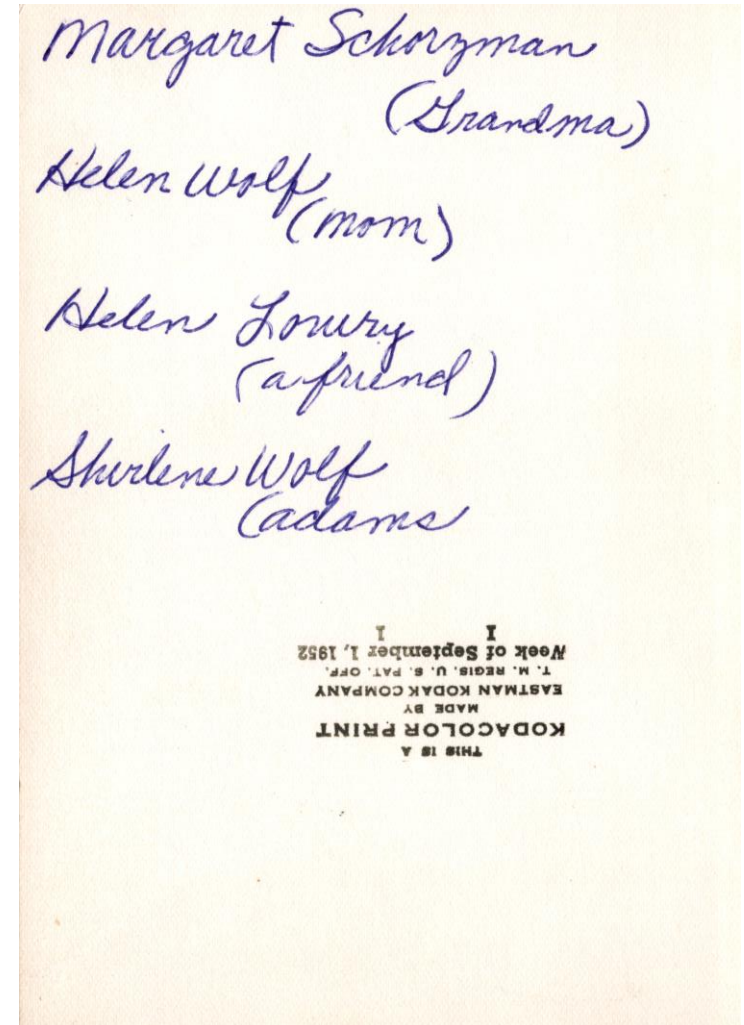 Margaret Schorzman
(Grandma)
Helen Wolf
(mom)
Helen Lowry
(a friend)
Shirlene Wolf
(adams
THIS IS A
KODACOLOR PRINT
MADE BY
EASTMAN KODAK COMPANY
T. M. REGIS. U. S. PAT. OFF.
Week of September 1, 1952
1 1